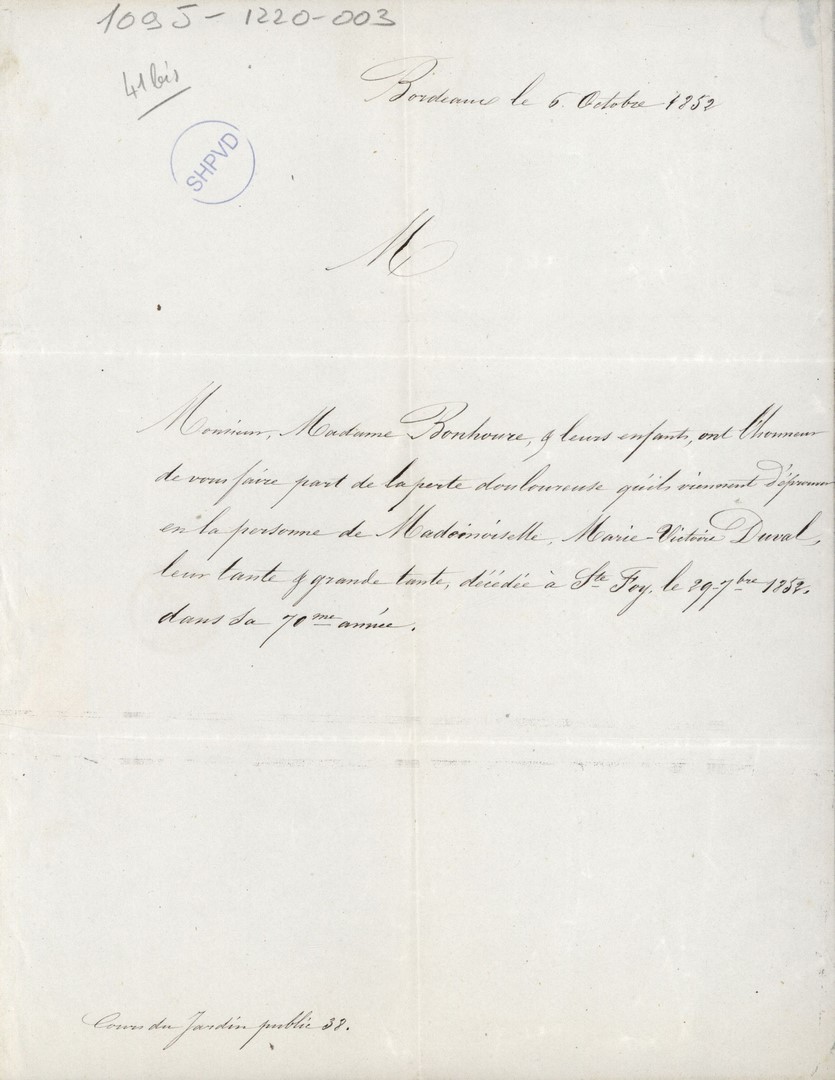 109J-1220-003
41 bis
SHPVD
Bordeaux le 6 Octobre 1852
M
Monsieur, Madame Bonhoure, & leurs enfants, ont l'honneur
de vous faire part de la perte douloureuse qu'ils viennent d'éprouver
en la personne de Mademoiselle, Marie-Victoire Duval,
leur tante & grande tante, décédée à Ste Foy, le 29 7bre 1852.
dans sa 70me année.
Cours du Jardin public 38.